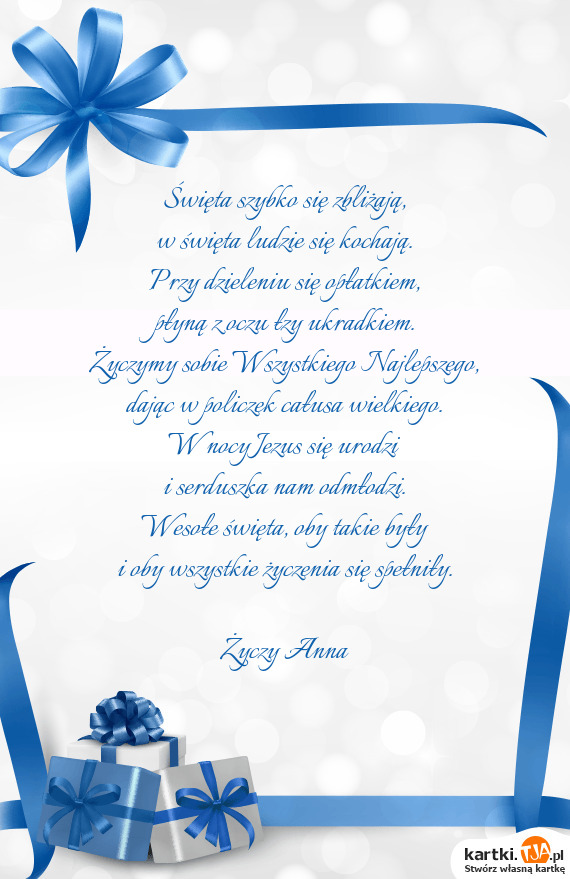 Święta szybko się zbliżają,
w święta ludzie się kochają.
Przy dzieleniu się opłatkiem,
płyną z oczu łzy ukradkiem.
Życzymy sobie Wszystkiego Najlepszego,
dając w policzek całusa wielkiego.
W nocy Jezus się urodzi
i serduszka nam odmłodzi.
Wesołe święta, oby takie były
i oby wszystkie życzenia się spełniły.
Życzy Anna
kartki.TJA.pl
Stwórz własną kartkę